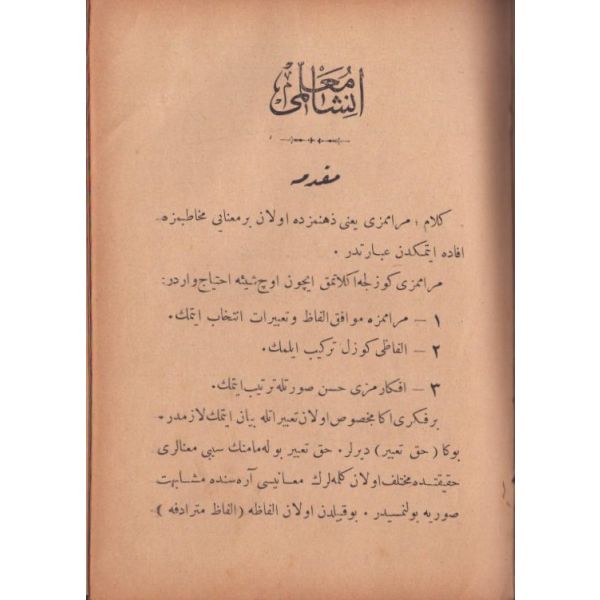 انشا معلمى
مقدمه
كلام ؛ مرامزى يعنى ذهنمزده اولان بر معنايى مخاطبمزه
افاده ايتمكدن عبارتدر ٠
مرامزى كوزلجه اكلاتمق ايچون اوچ شيئه احتياج واردر:
١ – مرامزه موافق الفاظ و تعبيرات انتخاب ايتمك.
٢ – الفاظى كوزل تركيب ايلمك.
٣ – افكارمزى حسن صورتله ترتيب ايتمك.
بر فكرى اكا مخصوص اولان تعبيراتله بيان ايتمك لازمدر ٠
بوكا (حق تعبير) ديرلر. حق تعبير بوله مامنك سببى معنالرى
حقيقتده مختلف اولان كلمه لرك معانيسى آره سنده مشابهت
صوريه بولنمسيدر ٠ بو قبيلدن اولان الفاظه (الفاظ مترادفه)